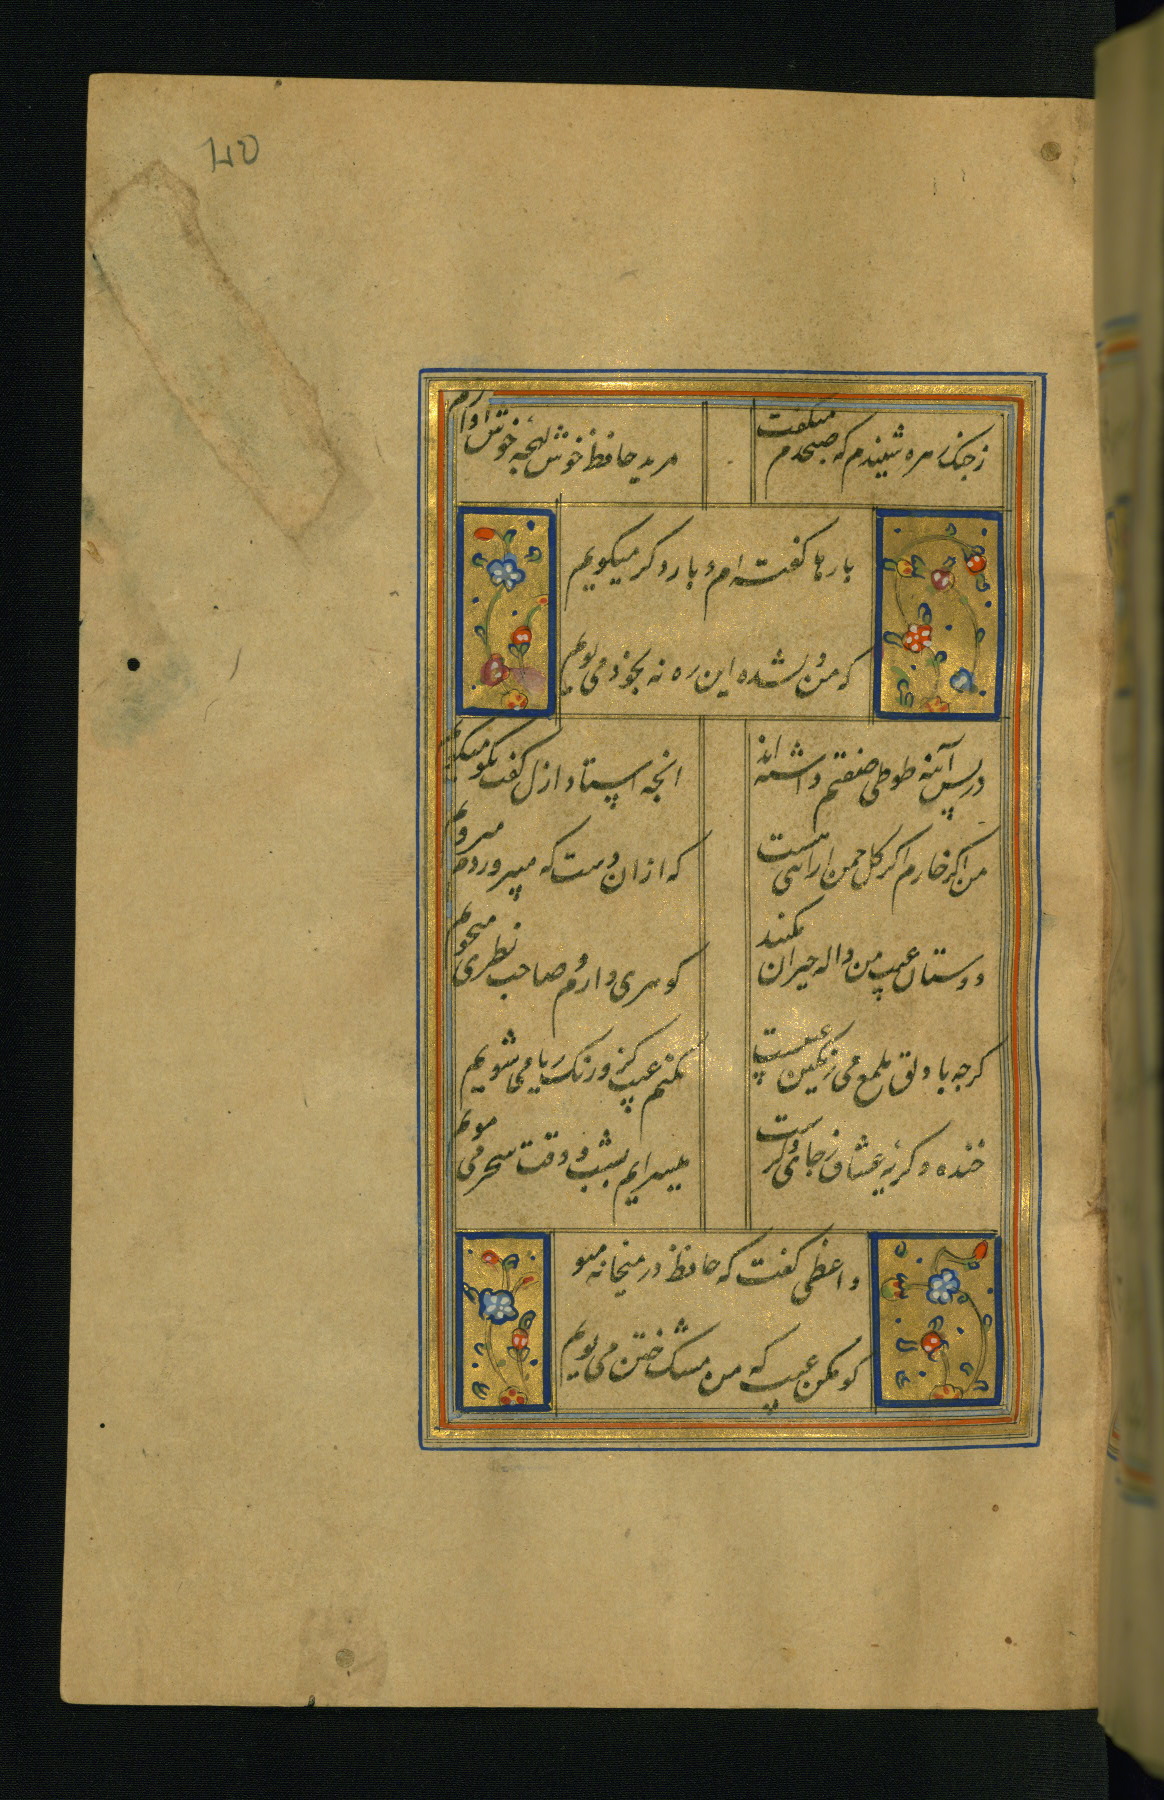 ۴۵
ز چنک زهره شنیدم که صبحدم میکفت
مرید حافظ خوش لهجه خوش اوازم
بارها کفته ام و بار دکر میکویم
که من دلشده این ره نه بخود می پویم
در پس آئنه طوطی صفتم داشته اند
انچه استاد ازل کفت بکو میکویم
من اکر خارم اکر کل چمن ارائی هست
که ازان دست که میپروردم میرویم
دوستان عیب من واله حیران مکنید
کوهری دارم و صاحب نظری میجویم
کرچه با دلق ملمع می رنکین عیبست
مکنم عیب کزو رنک ریا می شویم
خنده و کریه عشاق ز جای دکرست
میسرایم بشب و وقت سحر می مویم
واعظی کفت که حافظ در میخانه مبو
کو مکن عیب که من مشک ختن می بویم